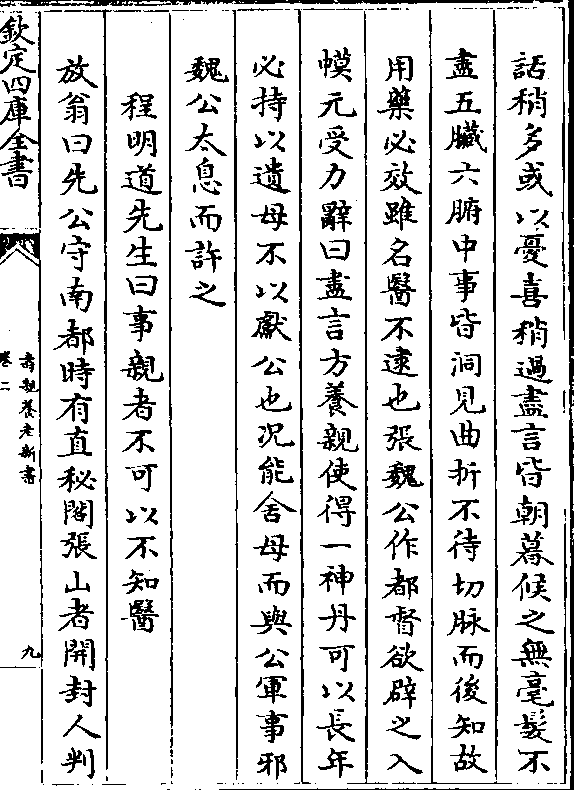 話稍多或以憂喜稍過盡言皆朝暮候之無毫髮不
盡五臟六腑中事皆洞見曲折不待切脉而後知故
用藥必效雖名醫不逮也張魏公作都督欲辟之入
幙元受力辭曰盡言方養親使得一神丹可以長年
必持以遺母不以獻公也况能舍母而與公軍事邪
魏公太息而許之
程明道先生曰事親者不可以不知醫
放翁曰先公守南都時有直秘閣張山者開封人判
欽定四庫全書
壽親養老新書
卷二
九